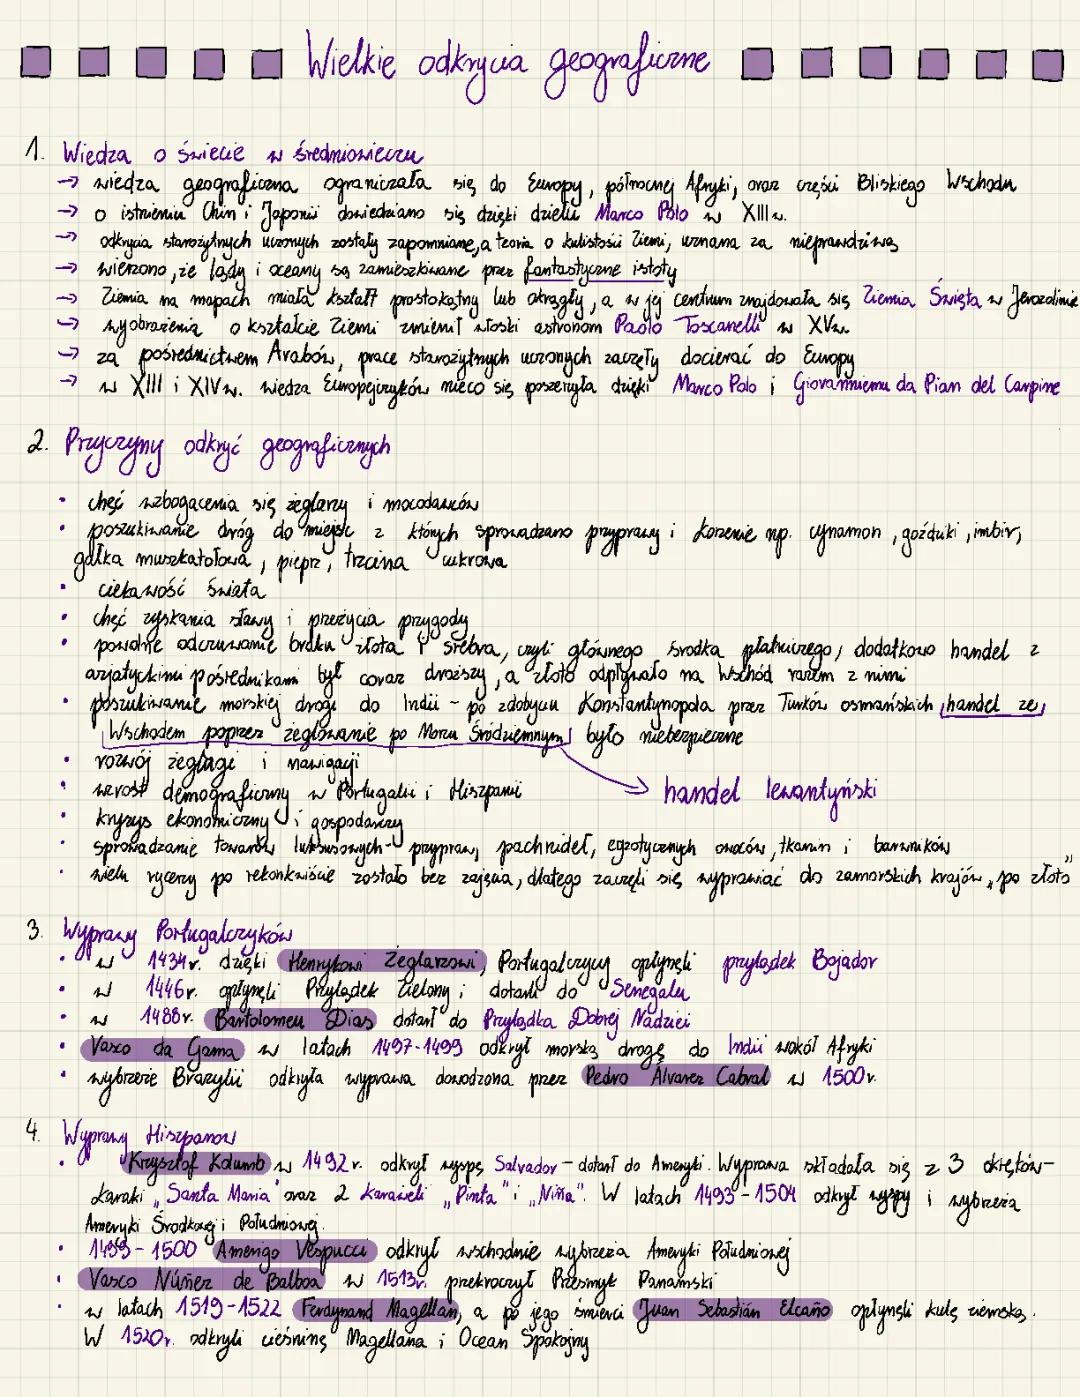 Wielkie odkrycia geograficzne
1. Wiedza o świecie w średniowieczu
→ wiedza geograficzna ograniczała się do Europy, północnej Afryki, oraz części Bliskiego Wschodu
→ o istnieniu Chin i Japonii dowiedziano się dzięki dziełu Marco Polo w XIII w.
→ odkrycia starożytnych uczonych zostały zapomniane, a teoria o kulistości Ziemi, uznana za nieprawdziwą
→ wierzono, że lądy i oceany są zamieszkiwane przez fantastyczne istoty
→ Ziemia na mapach miała kształt prostokątny lub okrągły, a w jej centrum znajdowała się Ziemia Święta w Jerozolimie
→ wyobrażenia o kształcie Ziemi zmienił włoski astronom Paolo Toscanelli w XV w.
→ za pośrednictwem Arabów, prace starożytnych uczonych zaczęły docierać do Europy
→ w XIII i XIV w. wiedza Europejczyków nieco się poszerzyła dzięki Marco Polo i Giovanniemu da Pian del Carpine
2. Przyczyny odkryć geograficznych
• chęć wzbogacenia się żeglarzy i mocodawców
• poszukiwanie dróg do miejsc z których sprowadzano przyprawy i korzenie np. cynamon, goździki, imbir,
gałka muszkatołowa, pieprz, trzcina cukrowa
• ciekawość świata
• chęć zyskania sławy i przeżycia przygody
• powolne odczuwanie braku złota i srebra, czyli głównego środka płatniczego, dodatkowo handel z
azjatyckimi pośrednikami był coraz droższy, a złoto odpływało na Wschód razem z nimi
• poszukiwanie morskiej drogi do Indii - po zdobyciu Konstantynopola przez Turków osmańskich handel ze
Wschodem poprzez żeglowanie po Morzu Śródziemnym było niebezpieczne
• rozwój żeglugi i nawigacji
• wzrost demograficzny w Portugalii i Hiszpanii
→ handel lewantyński
• kryzys ekonomiczny i gospodarczy
• sprowadzanie towarów luksusowych - przypraw, pachnideł, egzotycznych owoców, tkanin i barwników
• wielu rycerzy po rekonkwiście zostało bez zajęcia, dlatego zaczęli się wyprawiać do zamorskich krajów „po złoto”
3. Wyprawy Portugalczyków
• w 1434 r. dzięki Henrykowi Żeglarzowi, Portugalczycy opłynęli przylądek Bojador
• w 1446 r. opłynęli Przylądek Zielony i dotarli do Senegalu
• w 1488 r. Bartolomeu Dias dotarł do Przylądka Dobrej Nadziei
• Vasco da Gama w latach 1497-1499 odkrył morską drogę do Indii wokół Afryki
• wybrzeże Brazylii odkryła wyprawa dowodzona przez Pedro Álvarez Cabral w 1500 r.
4. Wyprawy Hiszpanów
• Krzysztof Kolumb w 1492 r. odkrył wyspę Salvador - dotarł do Ameryki. Wyprawa składała się z 3 okrętów -
karaki „Santa Maria” oraz 2 karaweli „Pinta” i „Niña”. W latach 1493 - 1504 odkrył wyspy i wybrzeża
Ameryki Środkowej i Południowej.
• 1499 - 1500 Amerigo Vespucci odkrył wschodnie wybrzeża Ameryki Południowej
• Vasco Núñez de Balboa w 1513 r. przekroczył Przesmyk Panamski
• w latach 1519-1522 Ferdynand Magellan, a po jego śmierci Juan Sebastián Elcaño opłynęli kulę ziemską.
W 1520 r. odkryli cieśninę Magellana i Ocean Spokojny